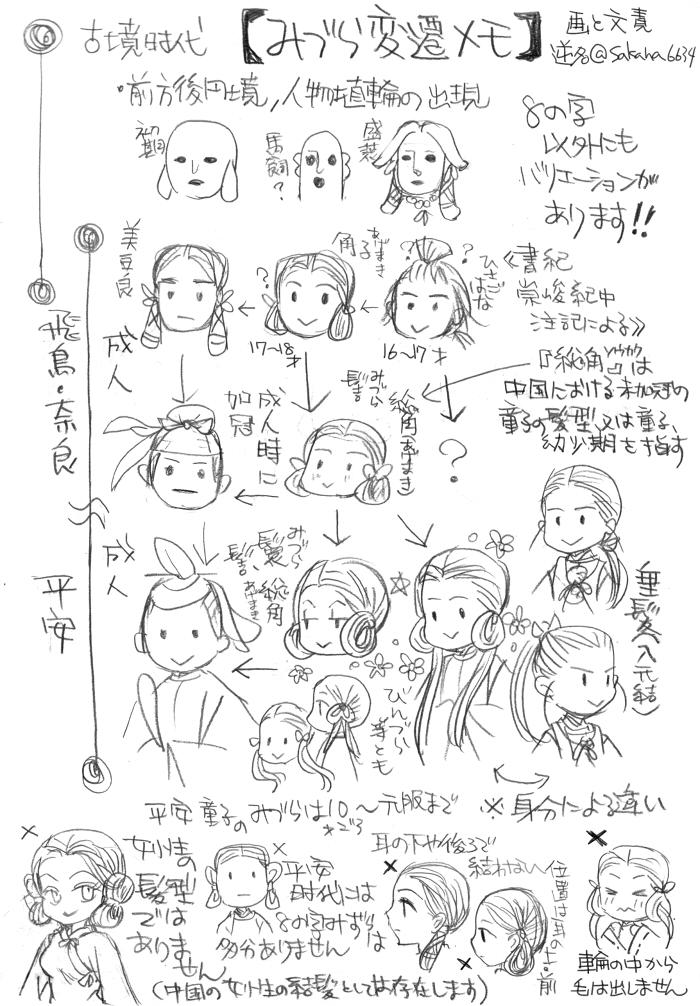 古墳時代
【みづら変遷メモ】
画と文責
逆名@sakana6634
・前方後円墳,人物埴輪の出現
初期
馬飼?
盛装
8の字
以外にも
バリエーションが
あります!!
美豆良
角子
あげまき
?
?
?
ひさごはな
《書紀
崇峻紀中
注記による》
17〜18才
16〜17才
飛鳥・奈良
成人
成人時に
加冠
みづら
髻
総角(あげまき)
?
『総角』は
ソウカク
中国における未加冠の
童子の髪型又は童子、
幼少期を指す
平安
成人
みづら
鬟
髻、総角
あげまき
びんづら
等とも
垂髪(入元結)
平安童子のみづらは10才ごろ〜元服まで
※身分による違い
×
女性の
髪型
では
ありま
せん
(中国の女性の結髪としては存在します)
×
平安
時代には
8の字みずらは
多分ありません
耳の下や後ろで
結わない
×
×
位置は耳の上・前
×
輪の中から
毛は出しません